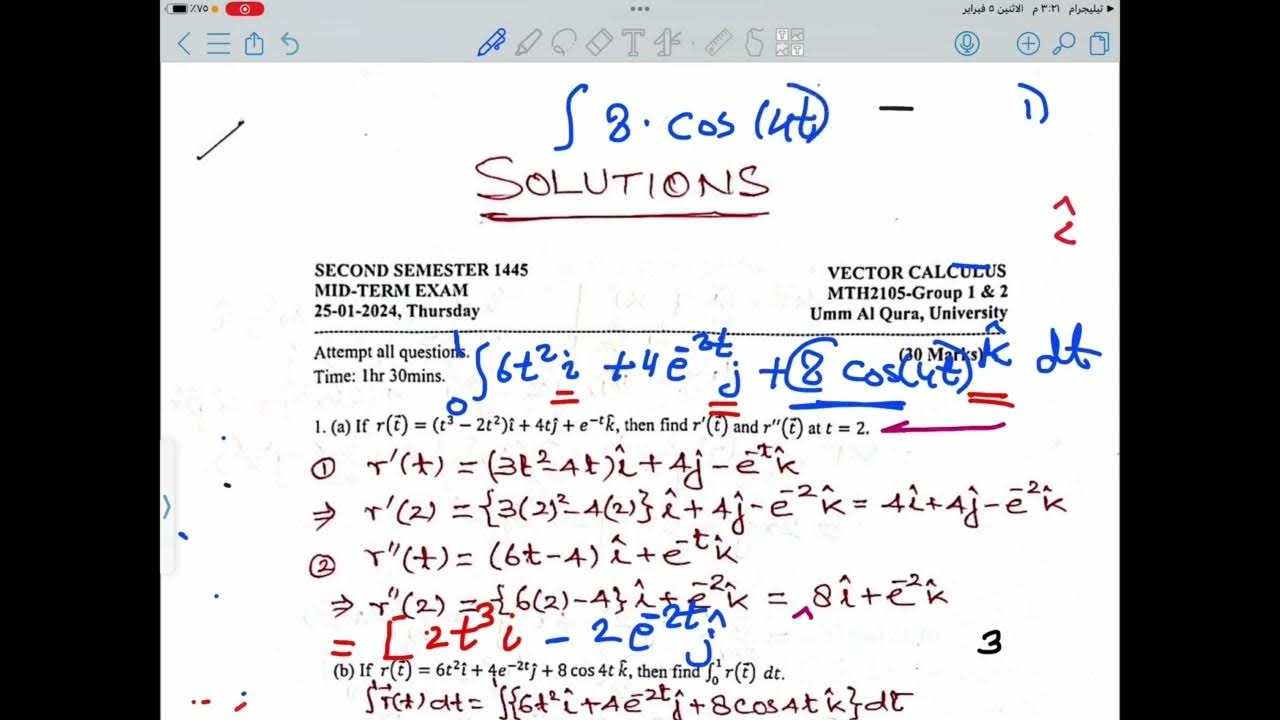 ٪٧٥ تيليجرام ٣:٢١ م الاثنين ٥ فبراير
∫ 8. cos (4t) — 1)
SOLUTIONS
SECOND SEMESTER 1445
MID-TERM EXAM
25-01-2024, Thursday
VECTOR CALCULUS
MTH2105-Group 1 & 2
Umm Al Qura, University
Attempt all questions.
(30 Marks)
Time: 1hr 30mins.
∫₀¹ 6t² i + 4e^{-2t} j + 8 cos(4t) k̂ dt
1. (a) If r(t⃗) = (t³ − 2t²)î + 4tĵ + e^{−t}k̂, then find r′(t⃗) and r′′(t⃗) at t = 2.
① r'(t) = (3t²-4t)î + 4ĵ - e^{-t}k̂
⇒ r'(2) = {3(2)²-4(2)}î + 4ĵ - e^{-2}k̂ = 4î + 4ĵ - e^{-2}k̂
② r''(t) = (6t-4)î + e^{-t}k̂
⇒ r''(2) = {6(2)-4}î + e^{-2}k̂ = 8î + e^{-2}k̂
= [2t³ i - 2e^{-2t} ĵ
3
(b) If r(t⃗) = 6t²î + 4e^{−2t}ĵ + 8 cos 4t k̂, then find ∫₀¹ r(t⃗) dt.
∫r⃗(t) dt = ∫{6t²î + 4e^{-2t}ĵ + 8cos4t k̂}dt